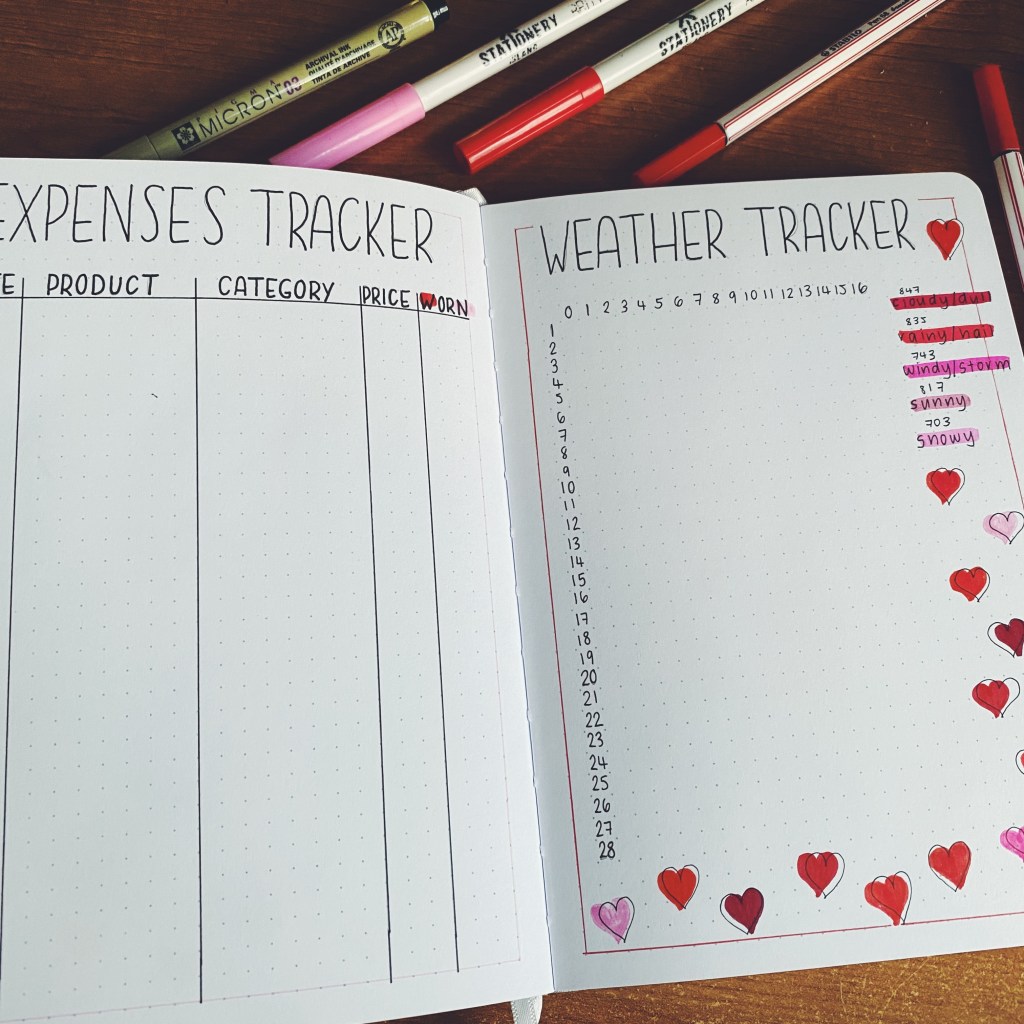 SIGMA
MICRON 08
ARCHIVAL INK
QUALITÉ D'ARCHIVAGE
TINTA DE ARCHIVE
AP
STATIONERY
ISLAND
STATIONERY
STABILO
EXPENSES TRACKER
PRODUCT
CATEGORY
PRICE
WORN
WEATHER TRACKER
0 1 2 3 4 5 6 7 8 9 10 11 12 13 14 15 16
847
cloudy/dull
835
rainy/hail
743
windy/storm
817
sunny
703
snowy
1
2
3
4
5
6
7
8
9
10
11
12
13
14
15
16
17
18
19
20
21
22
23
24
25
26
27
28